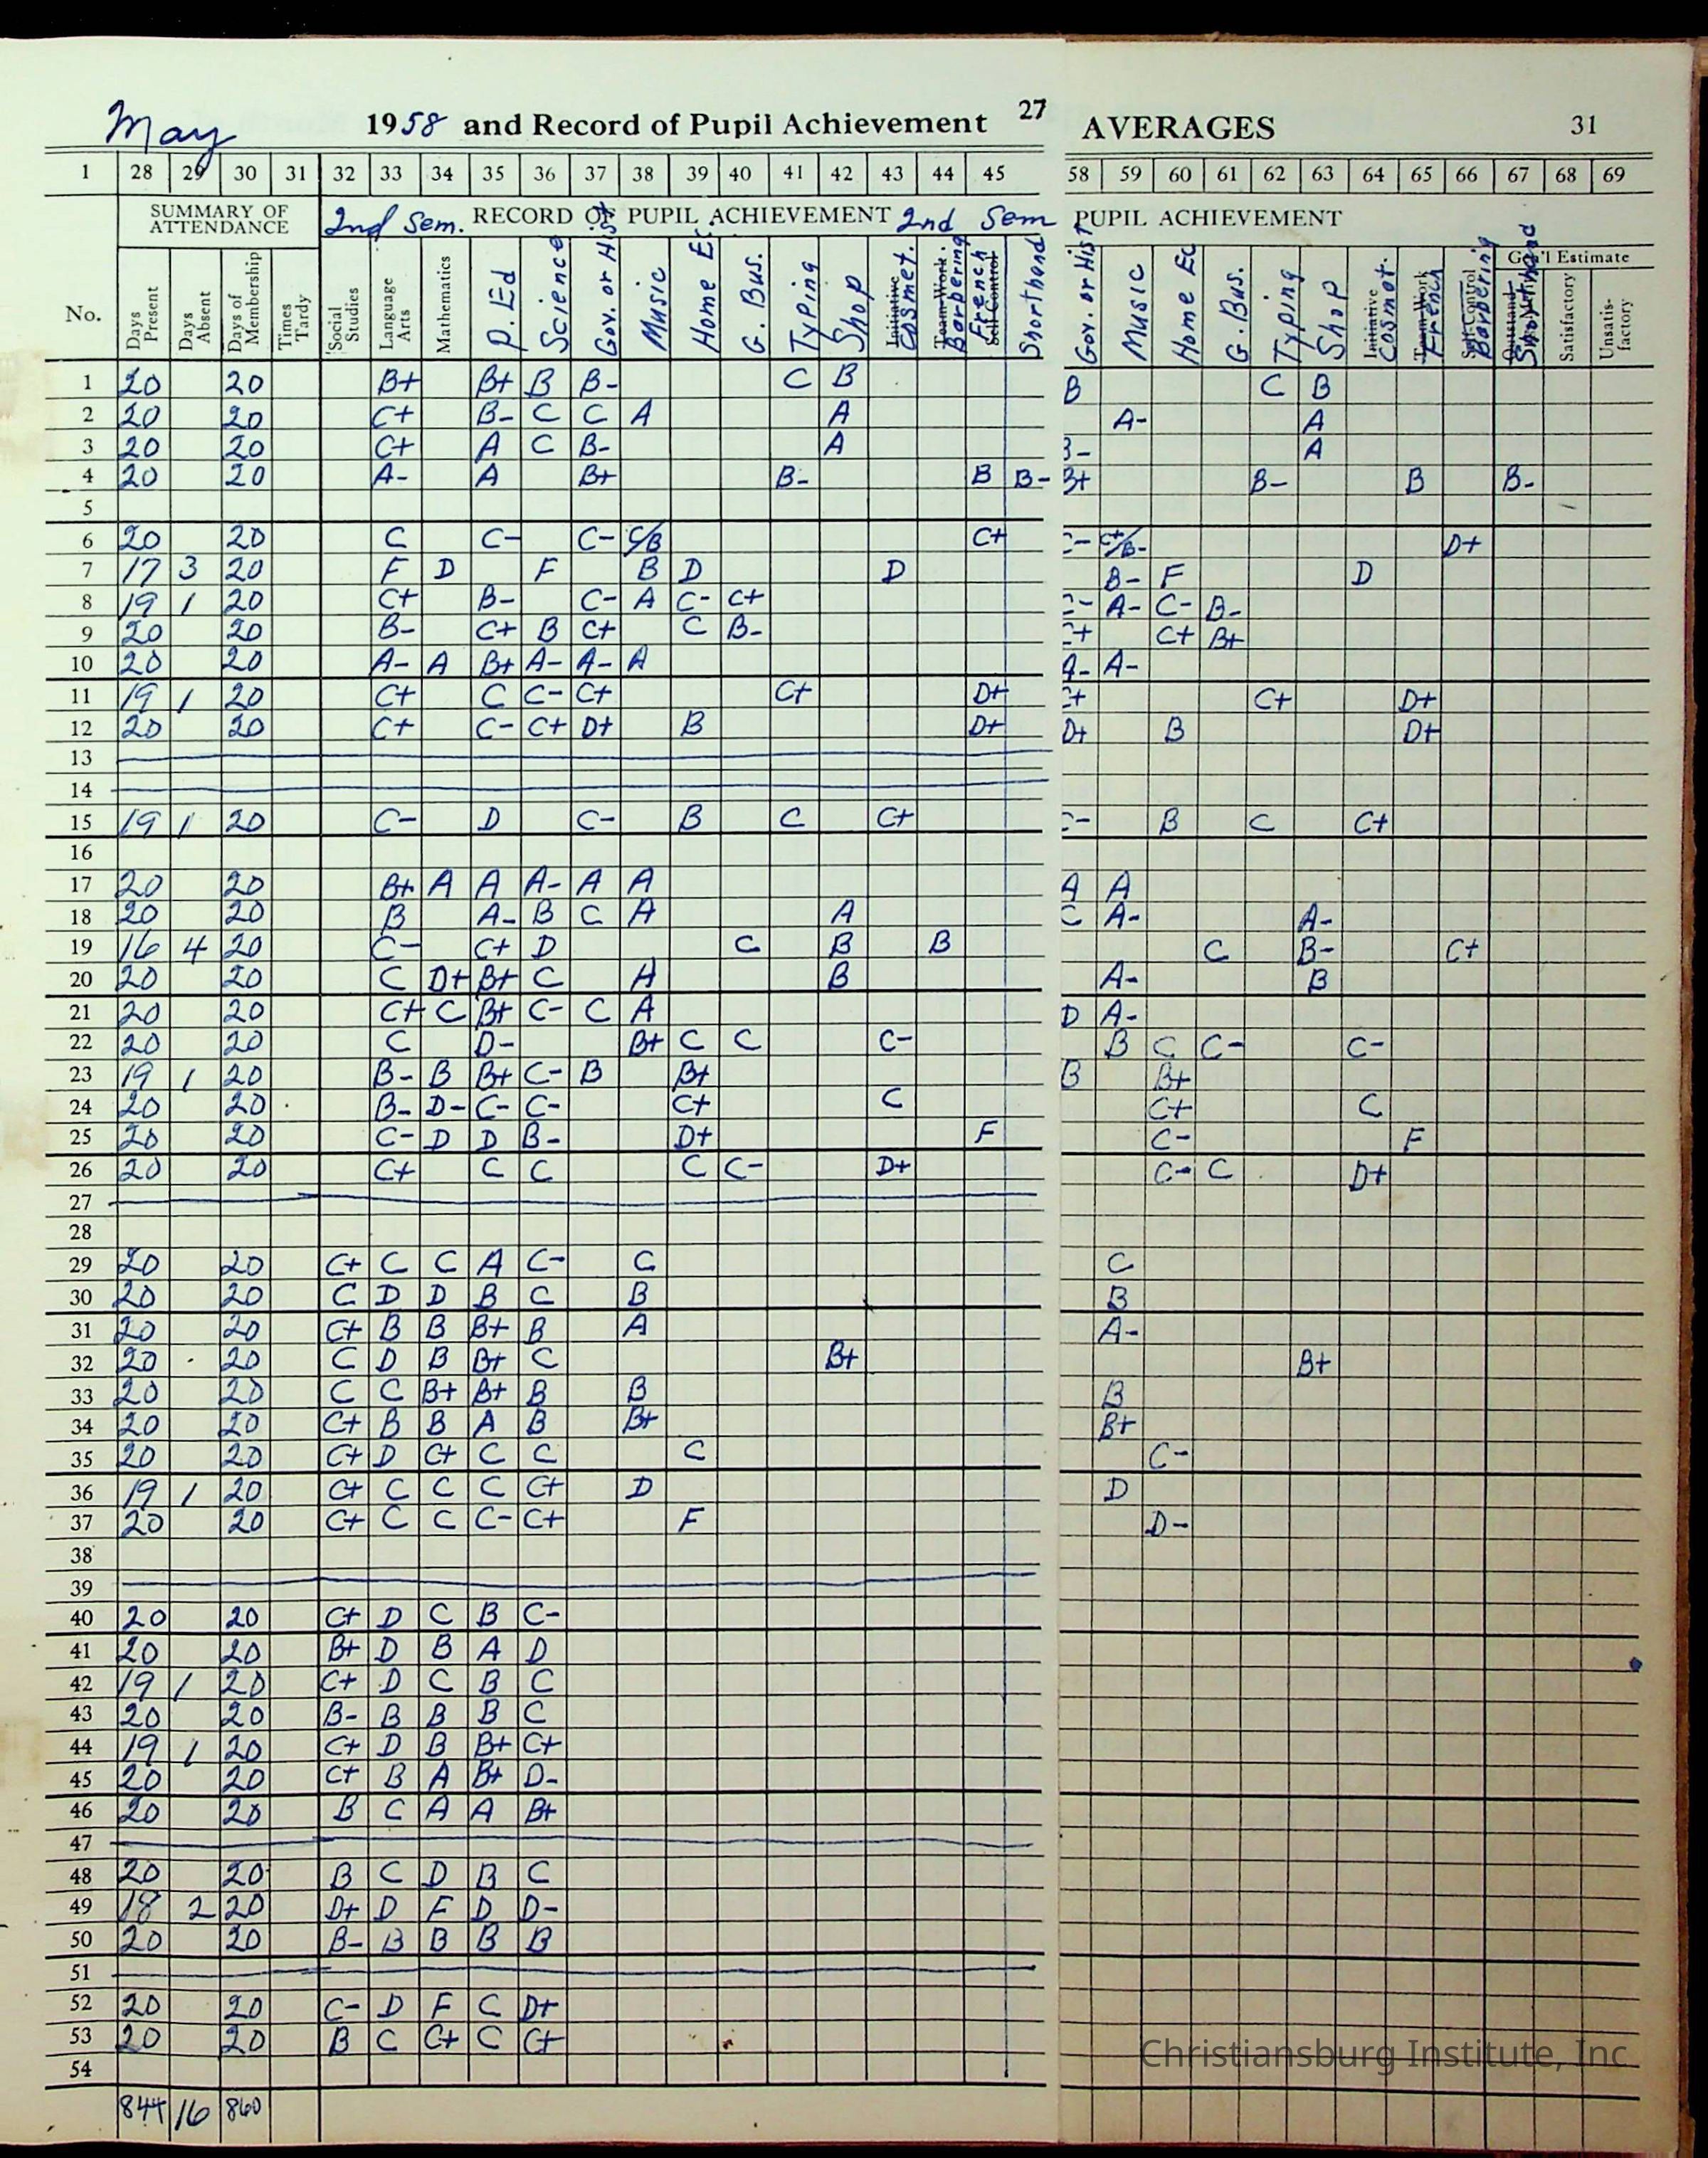 May 1958 and Record of Pupil Achievement 27 AVERAGES 31
1 28 29 30 31 32 33 34 35 36 37 38 39 40 41 42 43 44 45 58 59 60 61 62 63 64 65 66 67 68 69
SUMMARY OF ATTENDANCE 2nd Sem. RECORD OF PUPIL ACHIEVEMENT 2nd Sem PUPIL ACHIEVEMENT
Gen'l Estimate
No. Days Present Days Absent Days of Membership Times Tardy Social Studies Language Arts Mathematics P. Ed Science Gov. or Hist Music Home Ec G. Bus. Typing Shop Initiative Cosmet. Team Work. Barbering French Self Control Shorthand Gov. or Hist Music Home Ec G. Bus. Typing Shop Initiative Cosmet. Team Work French Self Control Barbering Shorthand Satisfactory Unsatis-factory
1 20 20 B+ B+ B B- C B B C B
2 20 20 C+ B- C C A A A- A
3 20 20 C+ A C B- A B- A
4 20 20 A- A B+ B- B B- B+ B- B B-
5
6 20 20 C C- C- C/B C+ C- C+/B- D+
7 17 3 20 F D F B D D B- F D
8 19 1 20 C+ B- C- A C- C+ C- A- C- B-
9 20 20 B- C+ B C+ C B- C+ C+ B+
10 20 20 A- A B+ A- A- A A- A-
11 19 1 20 C+ C C- C+ C+ D+ C+ C+ D+
12 20 20 C+ C- C+ D+ B D+ D+ B D+
13
14
15 19 1 20 C- D C- B C C+ C- B C C+
16
17 20 20 B+ A A A- A A A A
18 20 20 B A- B C A A C A- A-
19 16 4 20 C- C+ D C B B C B- C+
20 20 20 C D+ B+ C A B A- B
21 20 20 C+ C B+ C- C A D A-
22 20 20 C D- B+ C C C- B C C- C-
23 19 1 20 B- B B+ C- B B+ B B+
24 20 20 B- D- C- C- C+ C C+ C
25 20 20 C- D D B- D+ F C- F
26 20 20 C+ C C C C- D+ C- C D+
27
28
29 20 20 C+ C C A C- C C
30 20 20 C D D B C B B
31 20 20 C+ B B B+ B A A-
32 20 20 C D B B+ C B+ B+
33 20 20 C C B+ B+ B B B
34 20 20 C+ B B A B B+ B+
35 20 20 C+ D C+ C C C C-
36 19 1 20 C+ C C C C+ D D
37 20 20 C+ C C C- C+ F D-
38
39
40 20 20 C+ D C B C-
41 20 20 B+ D B A D
42 19 1 20 C+ D C B C
43 20 20 B- B B B C
44 19 1 20 C+ D B B+ C+
45 20 20 C+ B A B+ D-
46 20 20 B C A A B+
47
48 20 20 B C D B C
49 18 2 20 D+ D F D D-
50 20 20 B- B B B B
51
52 20 20 C- D F C D+
53 20 20 B C C+ C C+
54
844 16 860
Christiansburg Institute, Inc